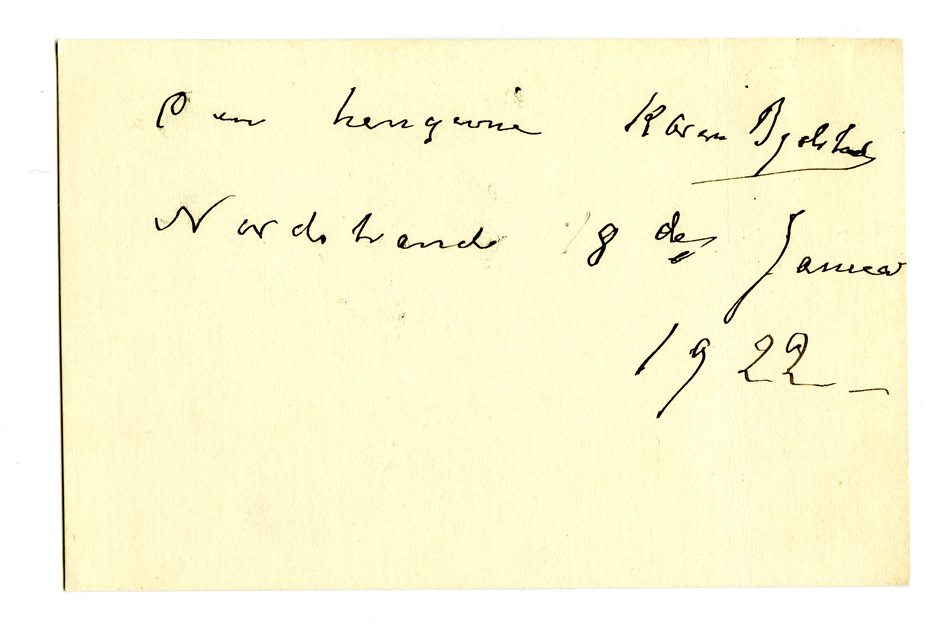 Den hengivne Karen Bjølstad
Nordstrand 18 de Januar
1922 –